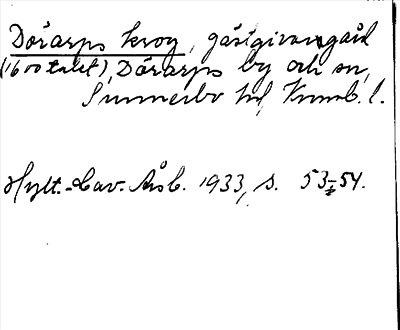 Dörarps krog, gästgivaregård
(1600talet), Dörarps by och sn,
Sunnerbo hd, Kronob. l.
Hylt.-Cav. Årsb. 1933, s. 53-54.